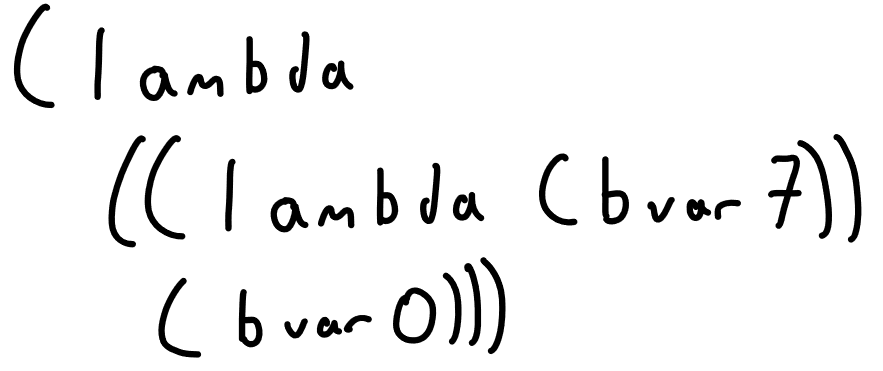 (lambda
((lambda (bvar 7))
(bvar 0)))